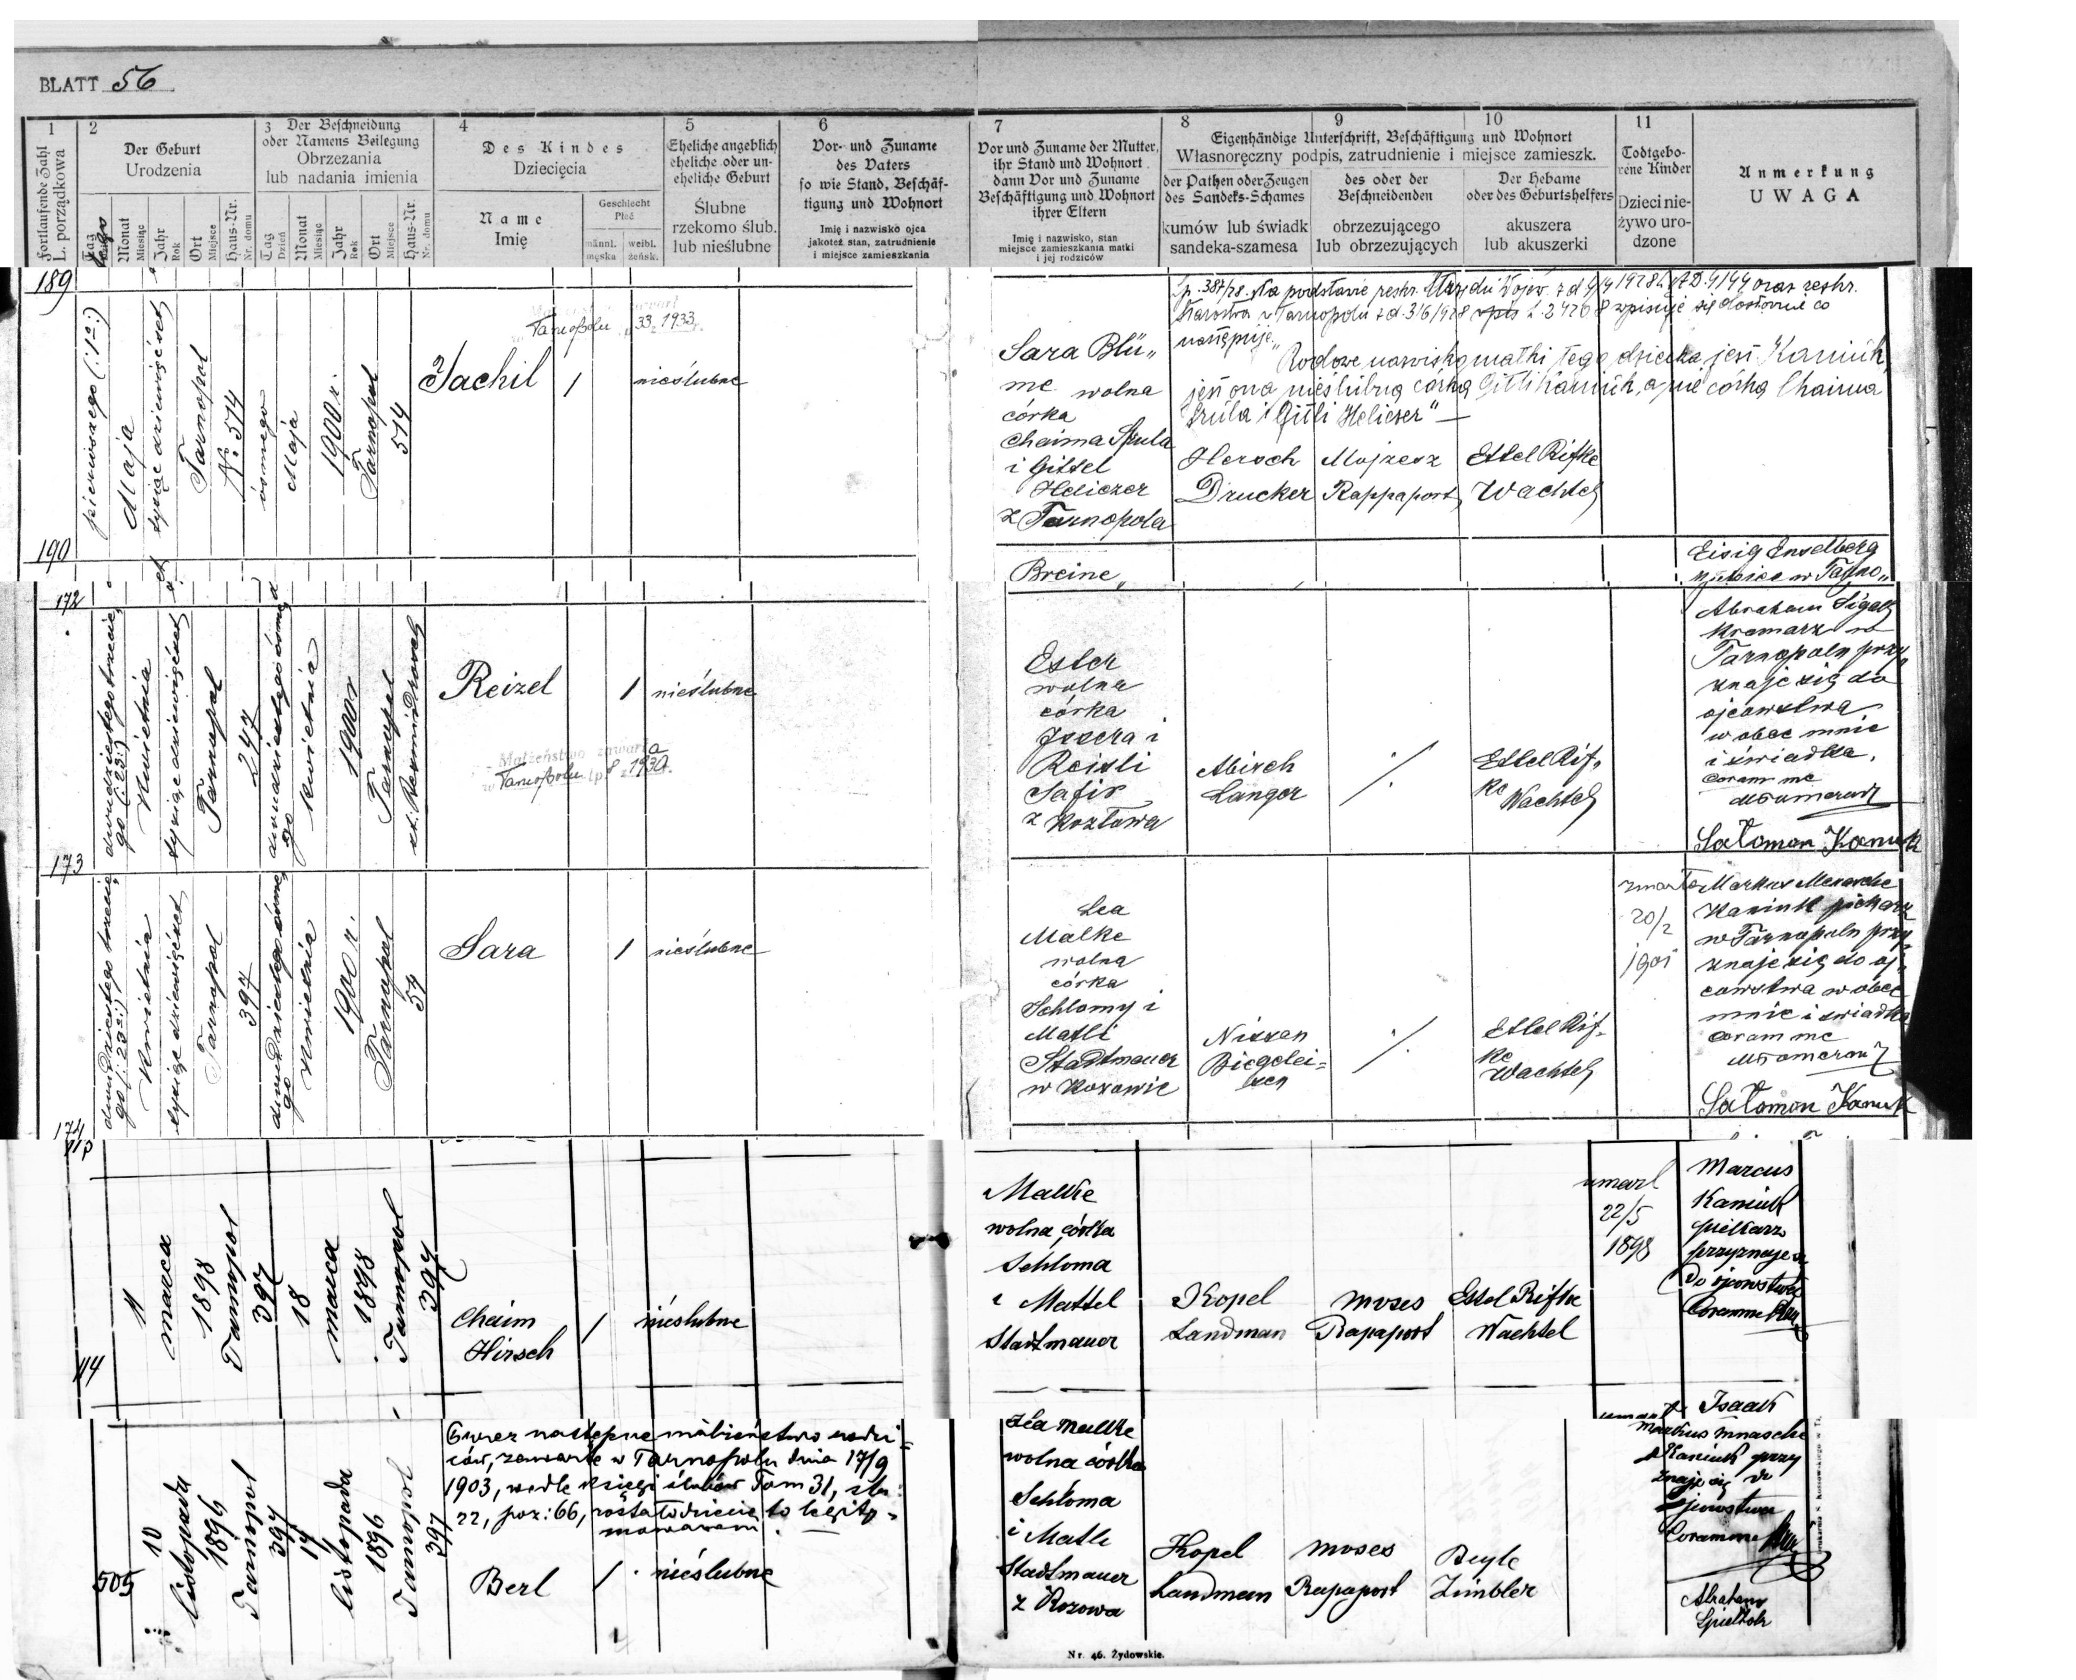 BLATT 56
1
Fortlaufende Zahl
L. porządkowa
2
Der Geburt
Urodzenia
Tag
Monat
Miesiąc
Jahr
Rok
Ort
Miejsce
Haus-Nr.
Nr. domu
3 Der Beschneidung
oder Namens Beilegung
Obrzezania
lub nadania imienia
Tag
Dzień
Monat
Miesiąc
Jahr
Rok
Ort
Miejsce
Haus-Nr.
Nr. domu
4
Des Kindes
Dziecięcia
Name
Imię
Geschlecht
Płeć
männl.
męska
weibl.
żeńsk.
5
Eheliche angeblich
eheliche oder un-
eheliche Geburt
Ślubne
rzekomo ślub.
lub nieślubne
6
Vor- und Zuname
des Vaters
so wie Stand, Beschäf-
tigung und Wohnort
Imię i nazwisko ojca
jakoteż stan, zatrudnienie
i miejsce zamieszkania
7
Vor und Zuname der Mutter,
ihr Stand und Wohnort
dann Vor und Zuname
Beschäftigung und Wohnort
ihrer Eltern
Imię i nazwisko, stan
miejsce zamieszkania matki
i jej rodziców
8 9 10
Eigenhändige Unterschrift, Beschäftigung und Wohnort
Własnoręczny podpis, zatrudnienie i miejsce zamieszk.
der Pathen oder Zeugen
des Sandeks-Schames
kumów lub świadk
sandeka-szamesa
des oder der
Beschneidenden
obrzezującego
lub obrzezujących
Der Hebame
oder des Geburtshelfers
akuszera
lub akuszerki
11
Todtgebo-
rene Kinder
Dzieci nie-
żywo uro-
dzone
Anmerkung
UWAGA
189
pierwszego (:1º:)
Maja
tysiąc dziewięćset
Tarnopol
№ 574
ósmego
Maja
1900 r.
Tarnopol
514
Jachil
1
nieślubne
Tarnopolu 33 1933
Sara Blü„
me wolna
córka
Chaima Szula
i Gittel
Heliczer
z Tarnopola
Lp. 387/28. Na podstawie reskr. Urzędu Wojew. z d. 4/4 1928 L. AD. 4/44 oraz reskr.
Starostwa w Tarnopolu z d. 3/6/928 L. 2426 8 wpisuje się dosłownie co
następuje„
Rodowe nazwisko matki tego dziecka jest Kaniuk,
jest ona nieślubną córką Gitli Kaniuk, a nie córką Chaima
Szula i Gitli Heliczer"—
Hersch
Drucker
Mojzesz
Rappaport
Ettel Rifke
Wachtel
190
Breine„
Eisig Enselberg
w Tarno„
172
dwudziestego trzecie
go (:23:)
Kwietnia
tysiąc dziewięćset
Tarnopol
247
dwudziestego ósme
go
kwietnia
1900 r
Tarnopol
Reizel
1
nieślubne
Małżeństwo zawarła
w Tarnopolu lp. 8 z 1930 r.
Ester
wolna
córka
Jssera i
Reisli
Safir
z Kozłowa
Abisch
Langer
/.
Ettel Rif„
ke
Wachtel
Abraham Sigall
kramarz w
Tarnopolu przy„
znaje się do
ojcowstwa
wobec mnie
i świadka.
Coram me
Salomon Kaniuk
173
dwudziestego trzecie
go (:23º:)
Kwietnia
tysiąc dziewięćset
Tarnopol
397
dwudziestego ósme
go
Kwietnia
1900 r.
Tarnopol
54
Sara
1
nieślubne
Lea
Malke
wolna
córka
Schlomy i
Matli
Stadtmauer
w Kozowie
Nissen
Biegelei=
sen
/.
Ettel Rif„
ke
Wachtel
zmarła
20/2
1901
Markus Menasche
Kaniuk piekarz
w Tarnopolu przy„
znaje się do oj„
cowstwa wobec
mnie i świadka
Coram me
Salomon Kaniuk
174
11
marca
1898
Tarnopol
397
18
marca
1898
Tarnopol
397
Chaim
Hirsch
1
nieślubne
Malke
wolna córka
Schloma
i Mattel
Stadtmauer
Kopel
Landman
Moses
Rapaport
Ettel Rifke
Wachtel
umarl
22/5
1898
Marcus
Kaniuk
piekarz
przyznaje się
do ojcowstwa
Coram me
114
Isaak
505
10
listopada
1896
Tarnopol
397
17
listopada
1896
Tarnopol
397
Przez następne małżeństwo rodzi=
ców, zawarte w Tarnopolu dnia 17/9
1903, wedle księgi ślubów Tom 31, str.
22, poz: 66, została dziecię to legity=
mowanem.
Berl
1
nieślubne
Lea Malke
wolna córka
Schloma
i Matli
Stadtmauer
z Kozowa
Kopel
Landman
Moses
Rapaport
Beyle
Zimbler
Markus Mnasche
Kaniuk przy
znaje się do
ojcowstwa
Coram me
Abraham
Nr. 46. Żydowskie.